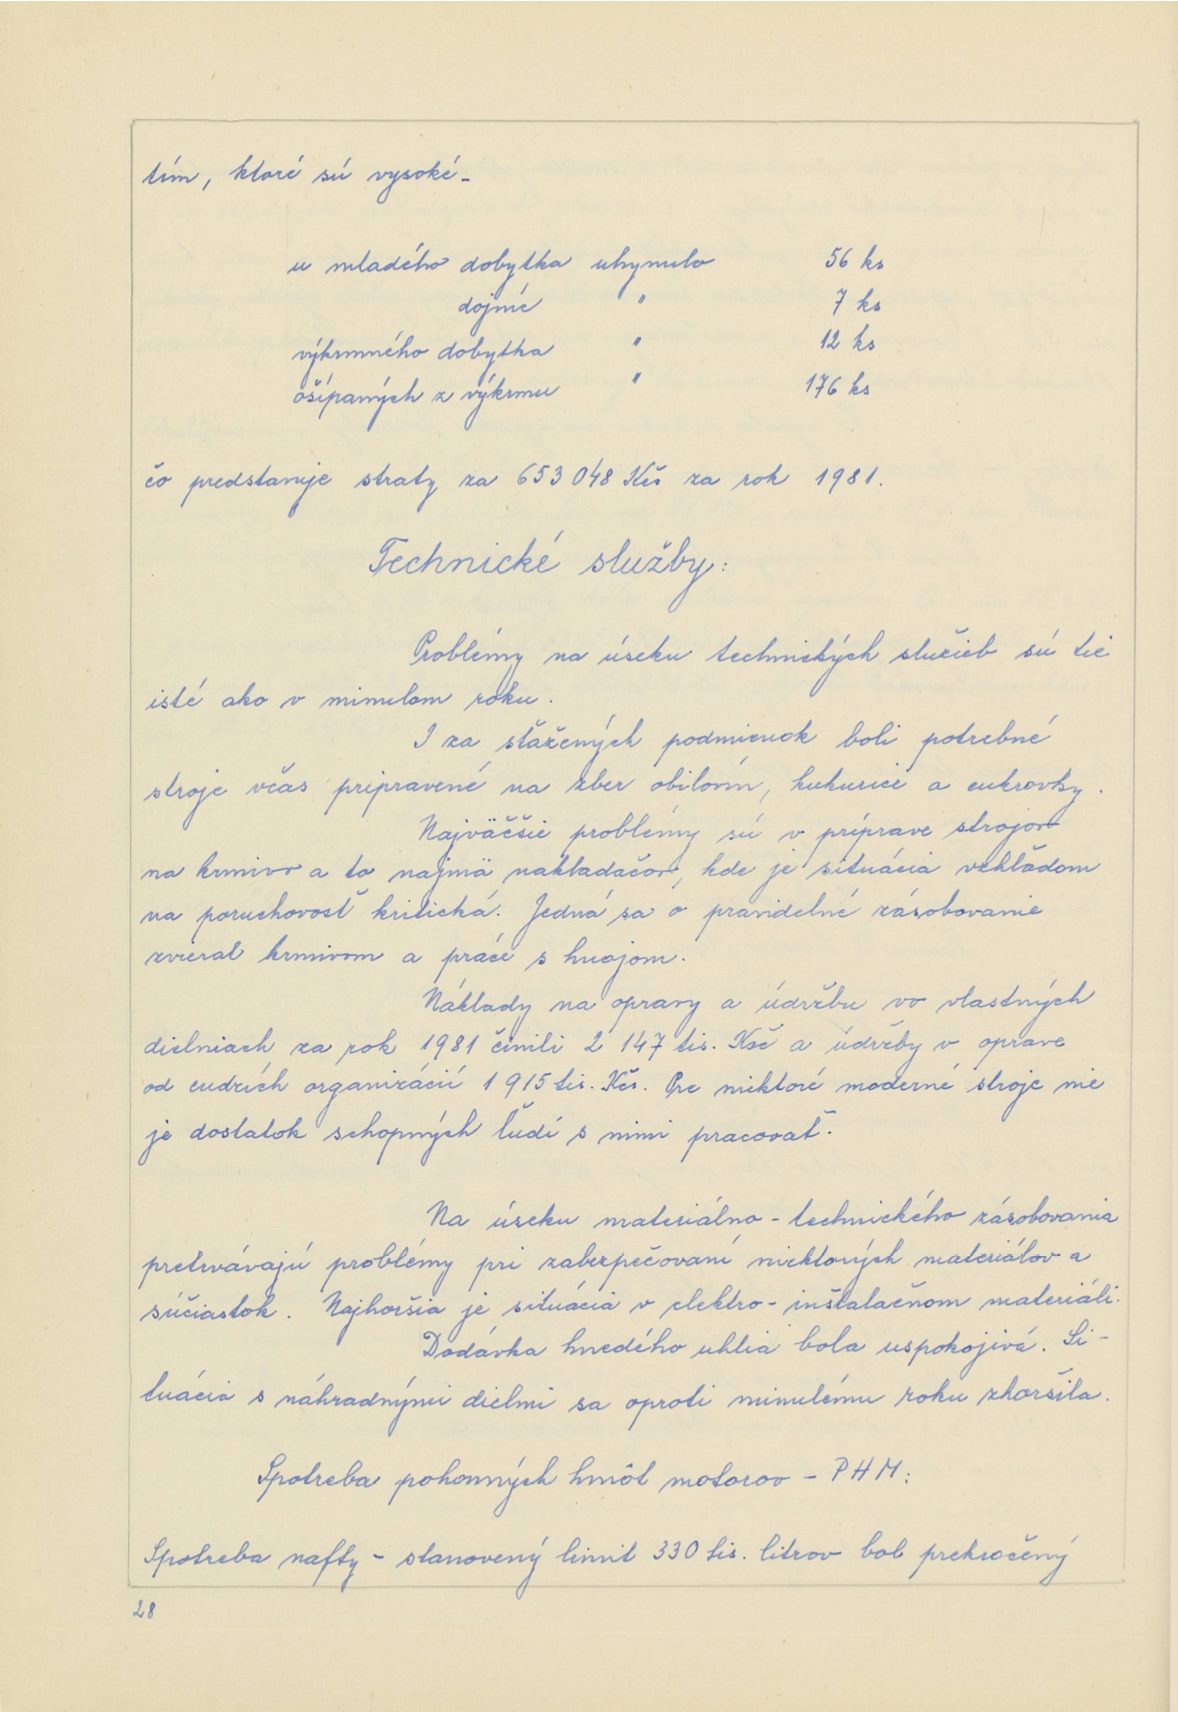 tím, ktoré sú vysoké -
u mladého dobytka uhynulo 56 ks
dojníc " 7 ks
výkrmného dobytka " 12 ks
ošípaných z výkrmu " 176 ks
čo predstavuje straty za 653 048 Kčs za rok 1981.
Technické služby:
Problémy na úseku technických služieb sú tie
isté ako v minulom roku.
I za sťažených podmienok boli potrebné
stroje včas pripravené na zber obilovín, kukurice a cukrovky.
Najväčšie problémy sú v príprave strojov
na krmivo a to najmä nakladačov, kde je situácia vzhľadom
na poruchovosť kritická. Jedná sa o pravidelné zásobovanie
zvierat krmivom a práce s hnojom.
Náklady na opravy a údržbu vo vlastných
dielniach za rok 1981 činili 2 147 tis. Kčs a údržby v oprave
od cudzích organizácií 1 915 tis. Kčs. Pre niektoré moderné stroje nie
je dostatok schopných ľudí s nimi pracovať.
Na úseku materiálno-technického zásobovania
pretrvávajú problémy pri zabezpečovaní niektorých materiálov a
súčiastok. Najhoršia je situácia v elektro-inštalačnom materiáli.
Dodávka hnedého uhlia bola uspokojivá. Si-
tuácia s náhradnými dielmi sa oproti minulému roku zhoršila.
Spotreba pohonných hmôt motorov - PHM:
Spotreba nafty - stanovený limit 330 tis. litrov bol prekročený
28